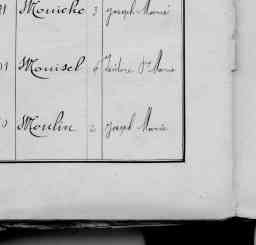 Mouiche 3 Joseph Marie
Mouisel 6 Isidore Ste Marie
Moulin 2 Joseph Marie